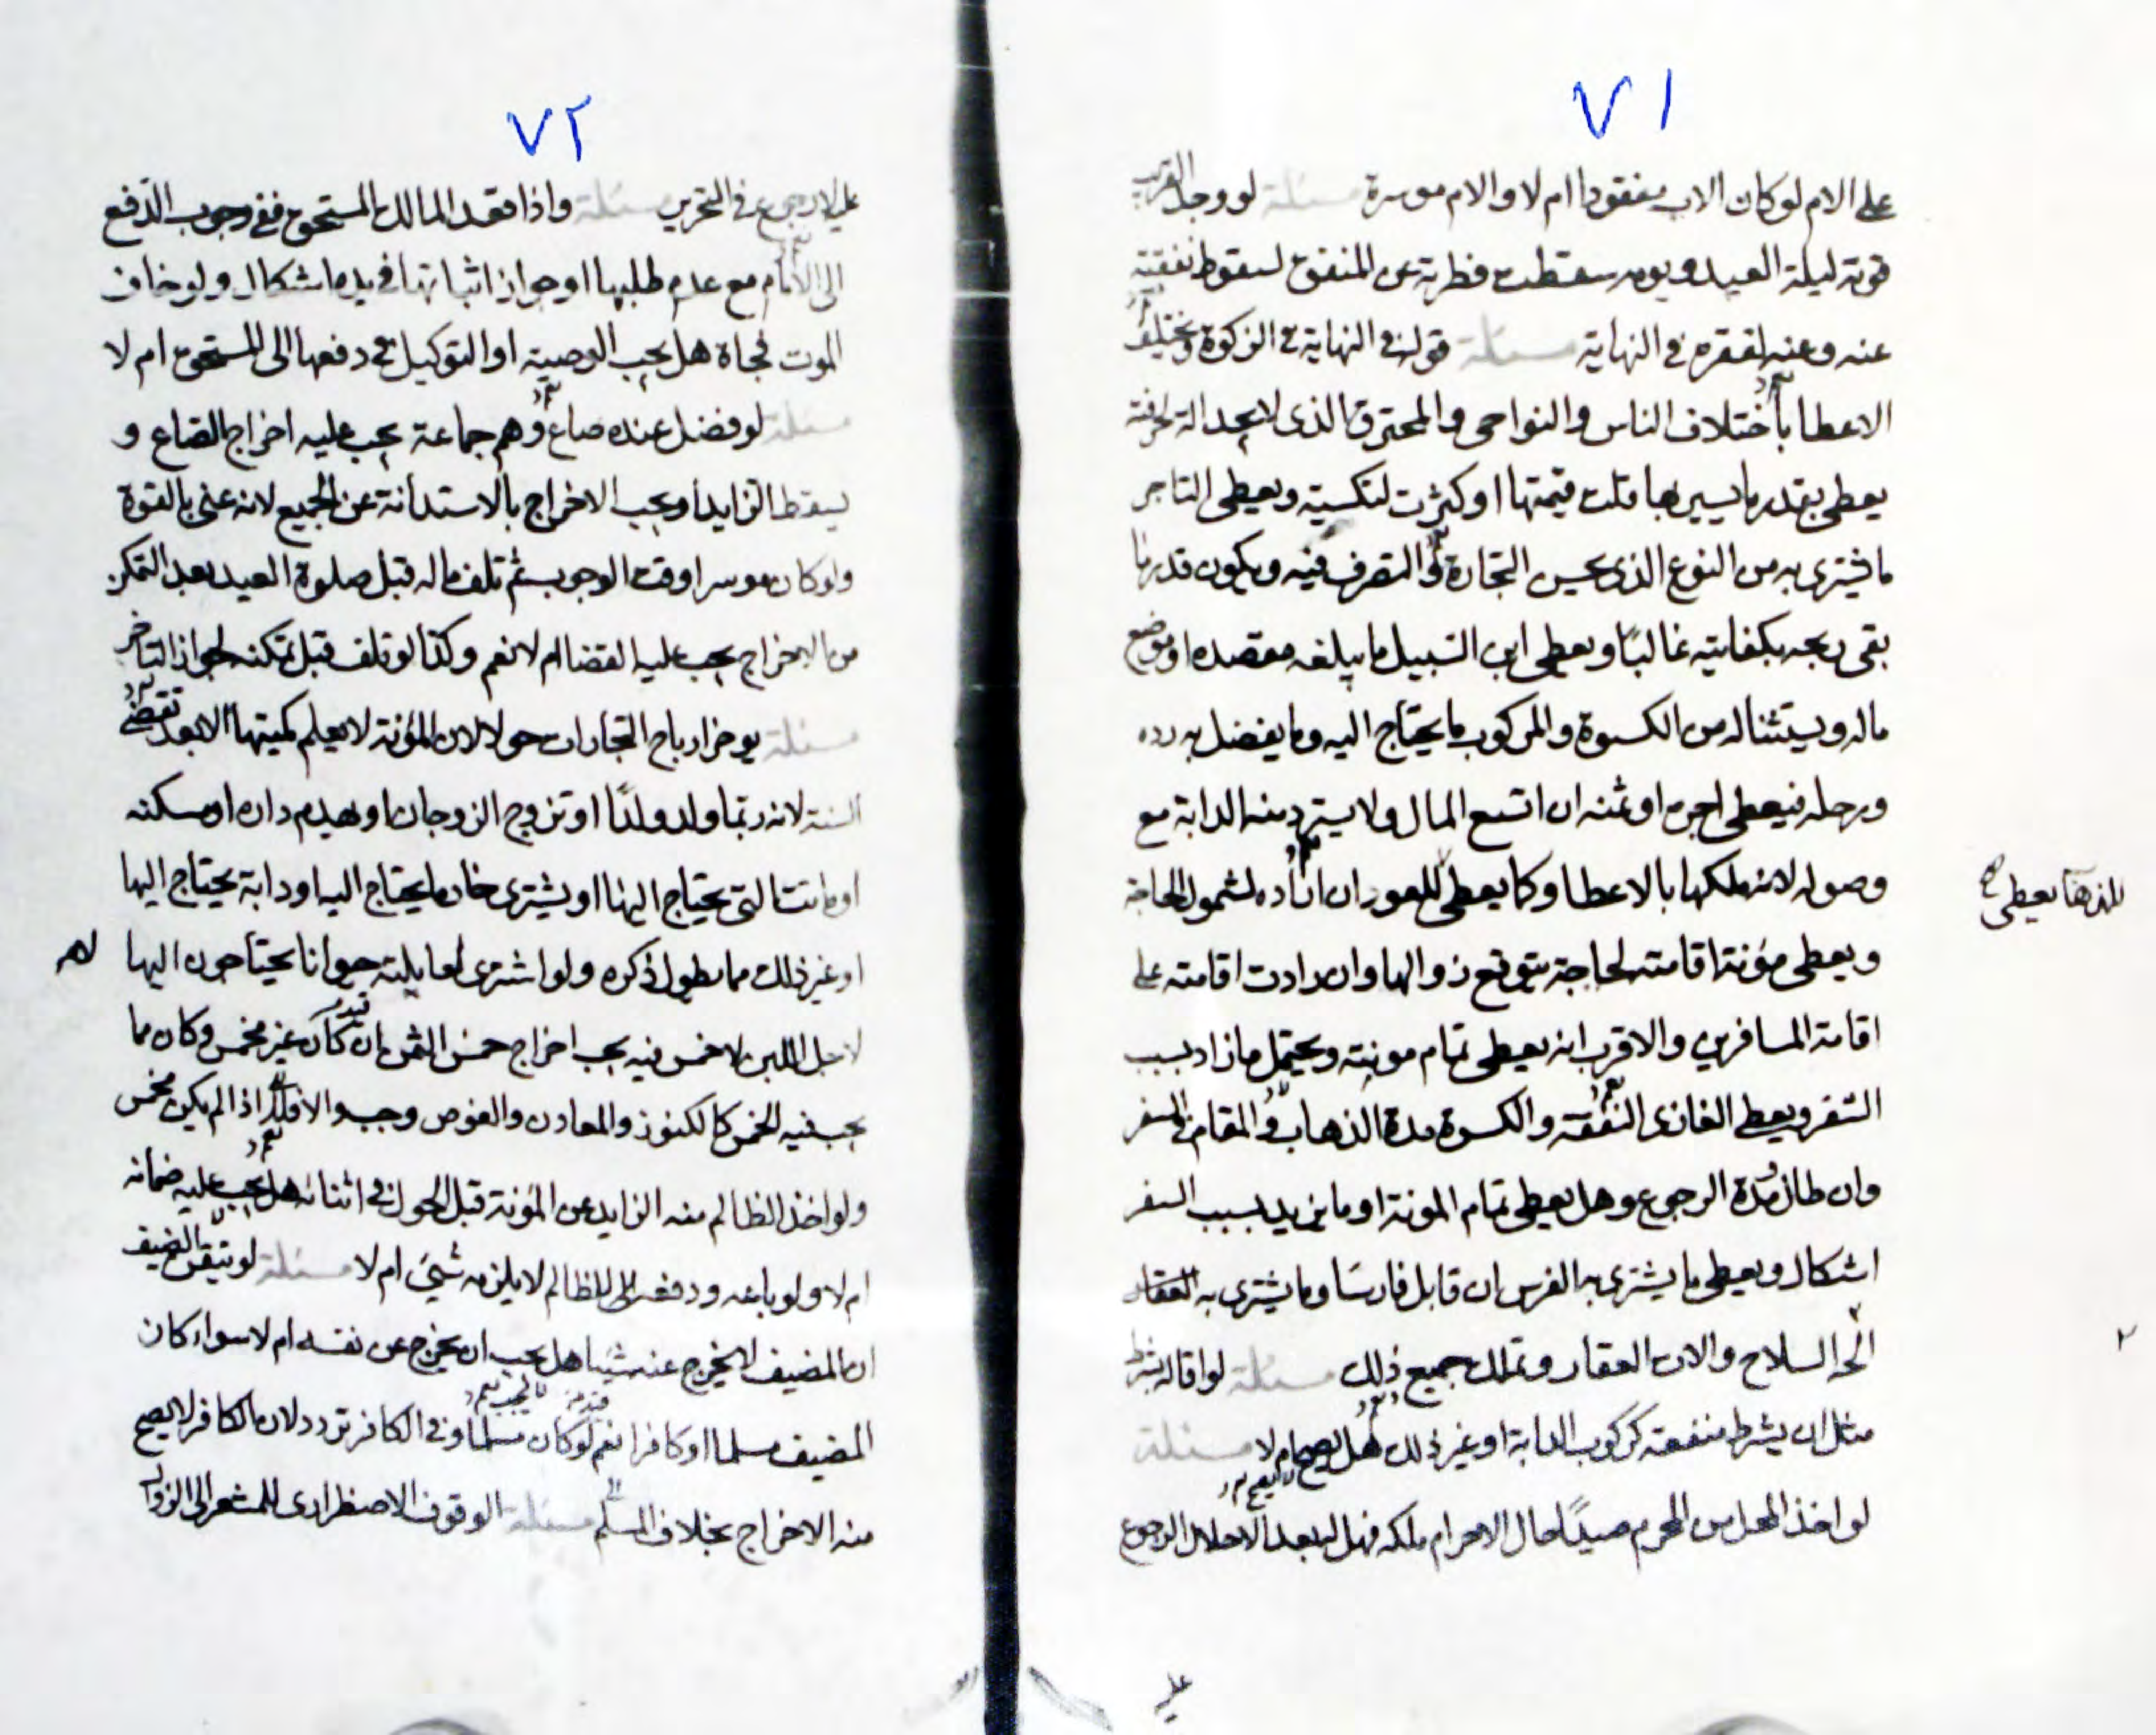 ٧١
على الام لو كان الاب مفقودا ام لا والام موسرة مسئلة لو وجد القريب
قوته ليلة العيد ويومه سقطت فطرته عن المنفق لسقوط نفقته
عنه وعنه لفقره في النهاية مسئلة قوله في النهاية في الزكوة ويختلف
الاعطا باختلاف الناس والنواحي والمحترف الذى لا يجد الة حرفته
يعطى بقدر ما يسيرها قلت قيمتها او كثرت لتكسبه ويعطى التاجر
ما يشترى به من النوع الذى يحسن التجارة او التصرف فيه ويكون قدر ما
بقى ربحه بكفايته غالبًا ويعطى ابن السبيل ما يبلغه مقصده او موضع
ماله ويستثنا له من الكسوة والمركوب ما يحتاج اليه وما يفضل به رده
ورحله فيعطى اجره او ثمنه ان اتسع المال ولا يسترد منه الدابة مع
وصوله لانه ملكها بالاعطا وكما يعطى للعود ان اراده لشمول الحاجة
للذهاب يعطى
ويعطى مؤنة اقامته لحاجة يتوقع زوالها وان زادت اقامته على
اقامة المسافرين والاقرب انه يعطى تمام مونته ويحتمل ما زاد بسبب
السفر ويعطى الغازى النفقة والكسوة مدة الذهاب والمقام في السفر
وان طال مدة الرجوع وهل يعطى تمام المونة او ما يزيد بسبب السفر
اشكال ويعطى ما يشترى به الفرس ان قابل فارسًا وما يشترى به
السلاح والات العقار وتملك جميع ذلك مسئلة لو اقاله بشرط
مثل ان يشرط منفعته كركوب الدابة او غير ذلك هل يصح ام لا مسئلة
لو اخذ المحل من المحرم صيدًا حال الاحرام ملكه فهل له بعد الاحلال الرجوع
٧٢
في التحرير مسئلة واذا فقد المالك المستحق ففي وجوب الدفع
الى الامام مع عدم طلبها او جواز اثباتها في يده اشكال ولو خاف
الموت فجاة هل يجب الوصية او التوكيل في دفعها الى المستحق ام لا
مسئلة لو فضل عنده صاع وهم جماعة يجب عليه اخراج الصاع و
يسقط الزايد او يجب الاخراج بالاستدانة عن الجميع لانه غنى بالقوة
ولو كان موسرا وقت الوجوب ثم تلف ماله قبل صلوة العيد بعد التمكن
من الاخراج يجب عليه القضا ام لا نعم وكذا لو تلف قبل تمكنه لجواز التاخير
مسئلة يوخر ارباح التجارات حولا لان المؤنة لا يعلم كميتها الا بعد تقضى
السنة لانه ربما ولد ولدًا او تزوج الزوجات او يهدم داره او مسكنه
او ماتت التى يحتاج اليها او يشترى خادما يحتاج اليه او دابة يحتاج اليها
او غير ذلك مما يطول ذكره ولو اشترى لعايلته حيوانا يحتاجون اليها
لاجل اللبن لا خمس فيه يجب اخراج خمس الثمن ان كان غير مخمس وكان مما
يجب فيه الخمس كالكنوز والمعادن والغوص وجب الاقل اذا لم يكن مخمس
ولو اخذ الظالم منه الزايد عن المؤنة قبل الحول في اثنائه هل يجب عليه ضمانه
ام لا ولو باعه ودفعه الى الظالم لا يلزمه شيئ ام لا مسئلة لو تيقن الضيف
ان المضيف لا يخرج عنه شيا هل يجب ان يخرج عن نفسه ام لا سواء كان
المضيف مسلما او كافرا نعم لو كان مسلما وفى الكافر تردد لان الكافر لا يصح
منه الاخراج بخلاف المسلم مسئلة الوقوف الاضطرارى للمشعر الى الزوال